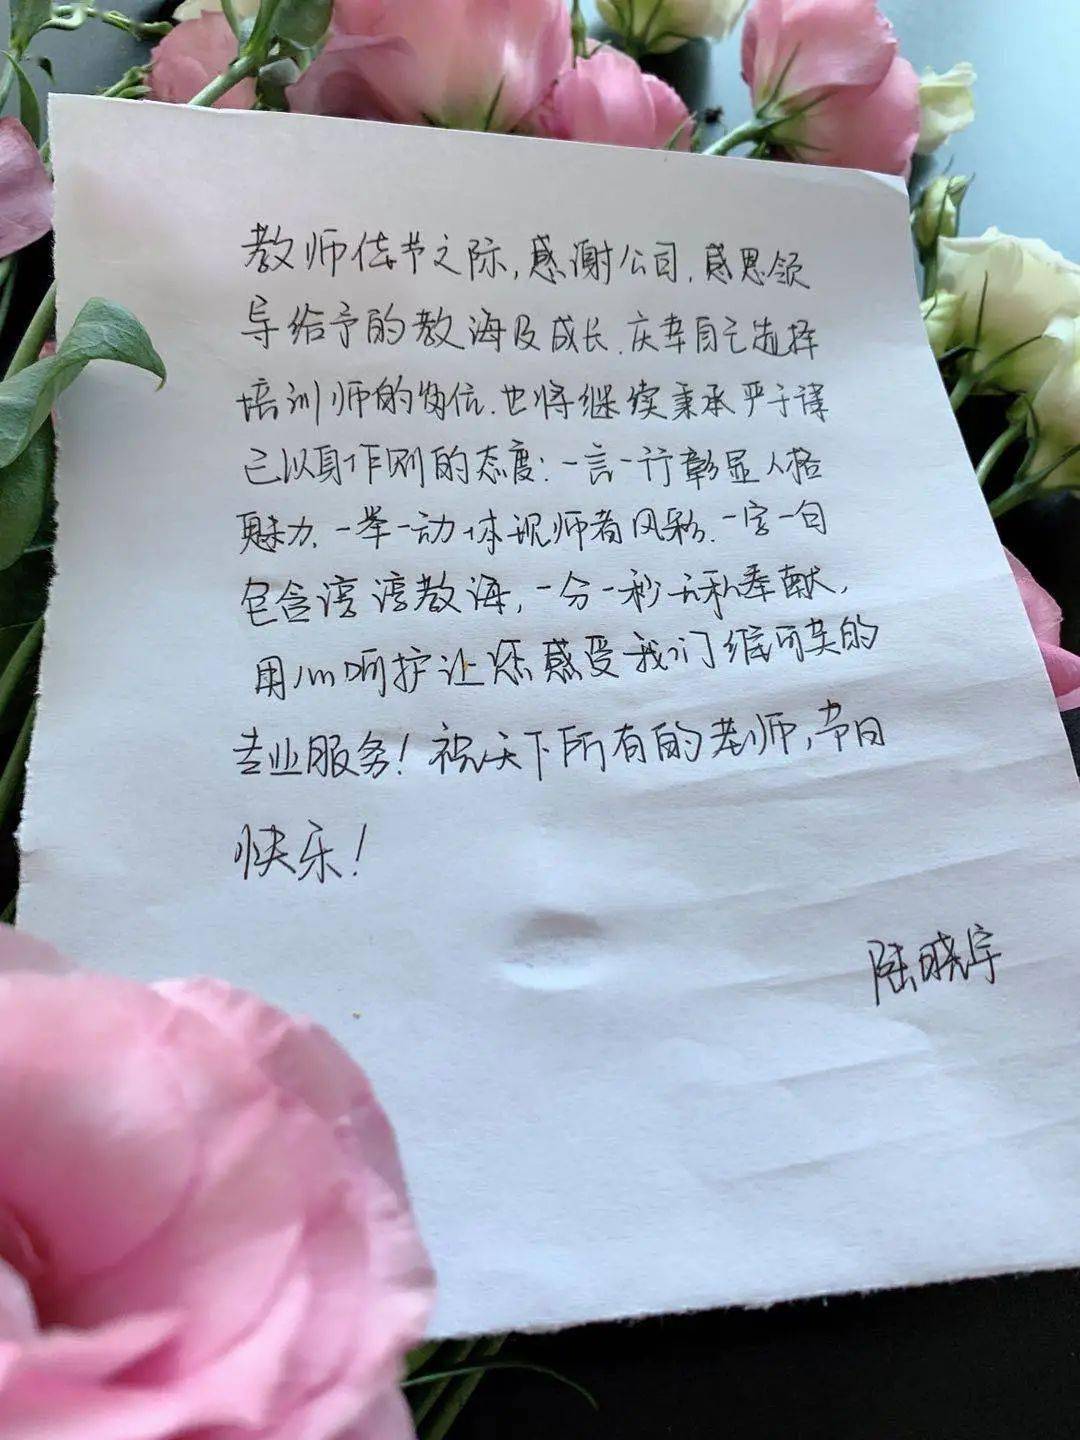 教师佳节之际,感谢公司,感恩领
导给予的教诲及成长.庆幸自己选择
培训师的岗位.也将继续秉承严于律
己以身作则的态度:一言一行彰显人格
魅力、一举一动体现师者风彩.一字一句
包含谆谆教诲,一分一秒无私奉献,
用心呵护让您感受我们维可美的
专业服务!祝天下所有的老师,节日
快乐!
陆晓宇